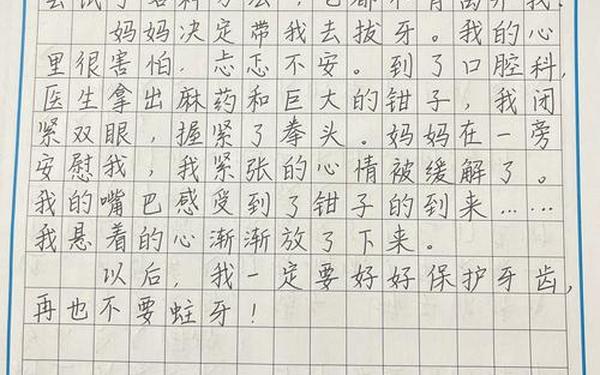 尝试了各种方法，它都不肯离开我。
妈妈决定带我去拔牙。我的心
里很害怕，忐忑不安。到了口腔科，
医生拿出麻药和巨大的钳子，我闭
紧双眼，握紧了拳头。妈妈在一旁
安慰我，我紧张的心情被缓解了。
我的嘴巴感受到了钳子的到来……
我悬着的心渐渐放了下来。
以后，我一定要好好保护牙齿，
再也不要蛀牙！